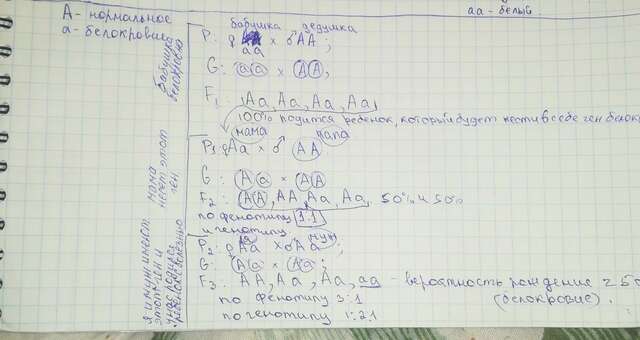 аа - белый.
А - нормальное
а - белокровие
бабушка дедушка
P: ♀ аа × ♂ АА;
G: а а × А А,
F1 Аа, Аа, Аа, Аа,
100% родится ребенок, который будет нести в себе ген белок
мама папа
P1 ♀ Аа × ♂ АА
G: А а × А А
F2: АА, АА, Аа, Аа, 50% и 50%
по фенотипу 1:1
и генотипу
я муж
P2: ♀ Аа × ♂ Аа;
G: А а × А а;
F3: АА, Аа, Аа, аа - вероятность рождение 25
по фенотипу 3:1 (белокровие).
по генотипу 1:2:1
бабушка
белокровие
мама
несет этот
ген
я и муж имеют
этот ген и